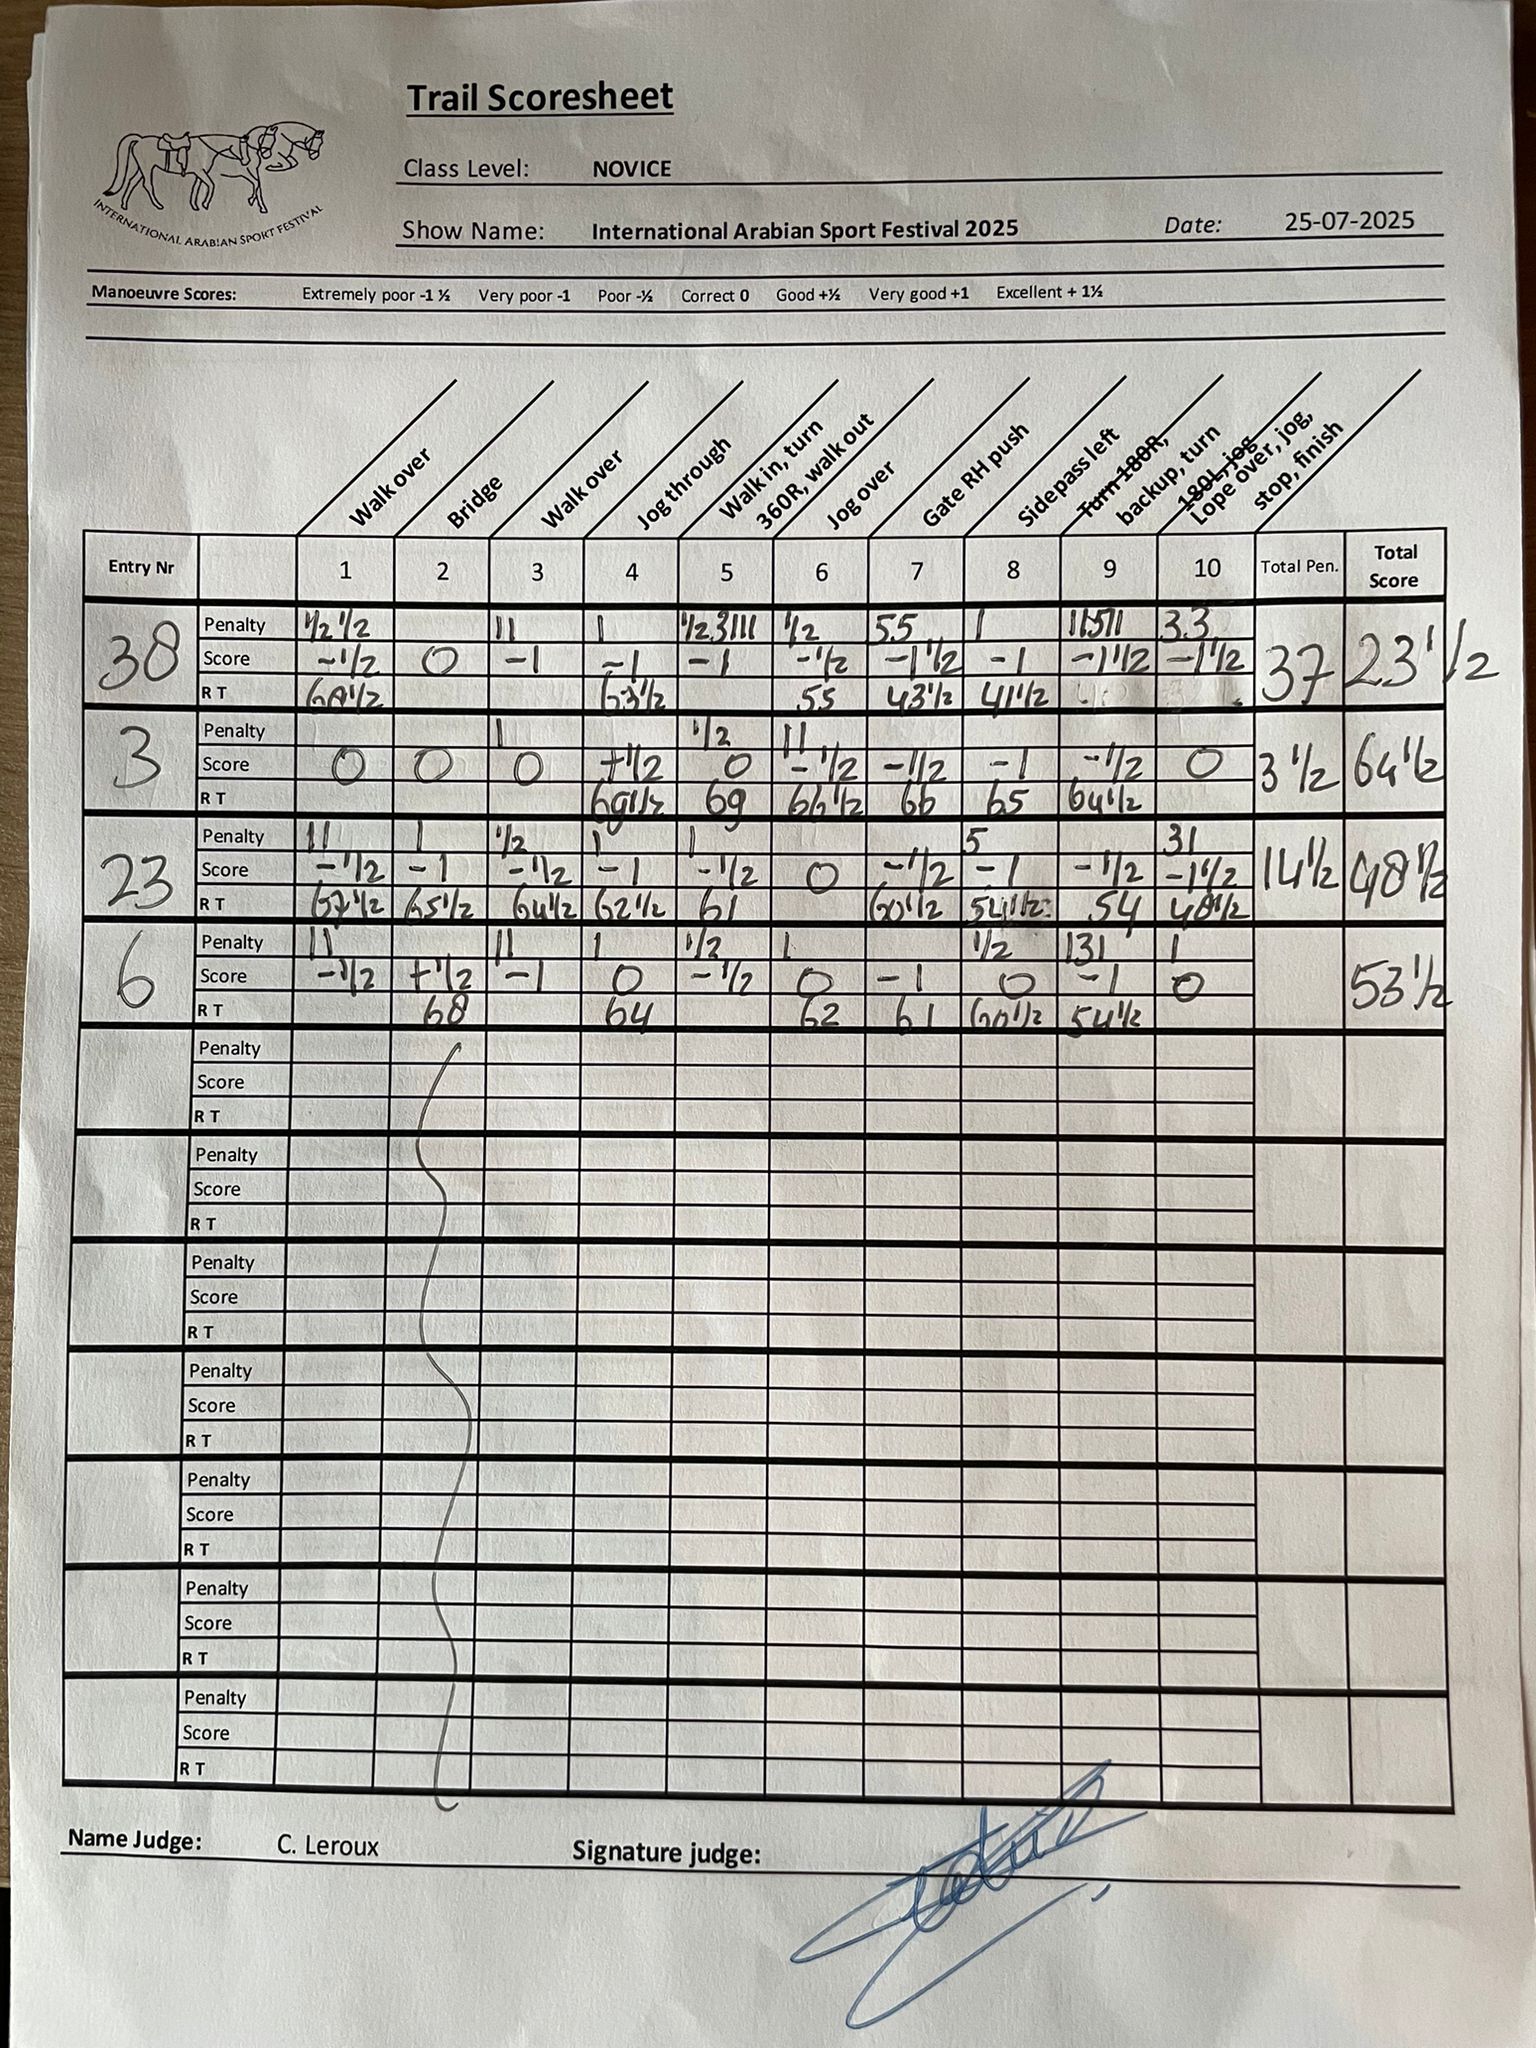 Trail Scoresheet
INTERNATIONAL ARABIAN SPORT FESTIVAL
Class Level: NOVICE
Show Name: International Arabian Sport Festival 2025 Date: 25-07-2025
Manoeuvre Scores: Extremely poor -1 ½ Very poor -1 Poor -½ Correct 0 Good +½ Very good +1 Excellent + 1½
Walk over
Bridge
Walk over
Jog through
Walk in, turn
360R, walk out
Jog over
Gate RH push
Sidepass left
Turn 180R,
backup, turn
180L, jog
Lope over, jog,
stop, finish
Entry Nr 1 2 3 4 5 6 7 8 9 10 Total Pen. Total Score
38
Penalty ½ ½ 11 1 ½ 3111 ½ 5.5 1 11511 3.3
Score -½ 0 -1 -1 -1 -½ -1½ -1 -1½ -1½ 37 23½
R T 68½ 63½ 55 43½ 41½
3
Penalty 1 ½ 11
Score 0 0 0 +½ 0 -½ -½ -1 -½ 0 3½ 64½
R T 69½ 69 66½ 66 65 64½
23
Penalty 11 1 ½ 1 1 5 31
Score -½ -1 -½ -1 -½ 0 -½ -1 -½ -1½ 14½ 48½
R T 67½ 65½ 64½ 62½ 61 60½ 54½ 54 48½
6
Penalty 11 11 1 ½ 1 ½ 131 1
Score -½ +½ -1 0 -½ 0 -1 0 -1 0 53½
R T 68 64 62 61 60½ 54½
Penalty
Score
R T
Penalty
Score
R T
Penalty
Score
R T
Penalty
Score
R T
Penalty
Score
R T
Penalty
Score
R T
Penalty
Score
R T
Name Judge: C. Leroux Signature judge: